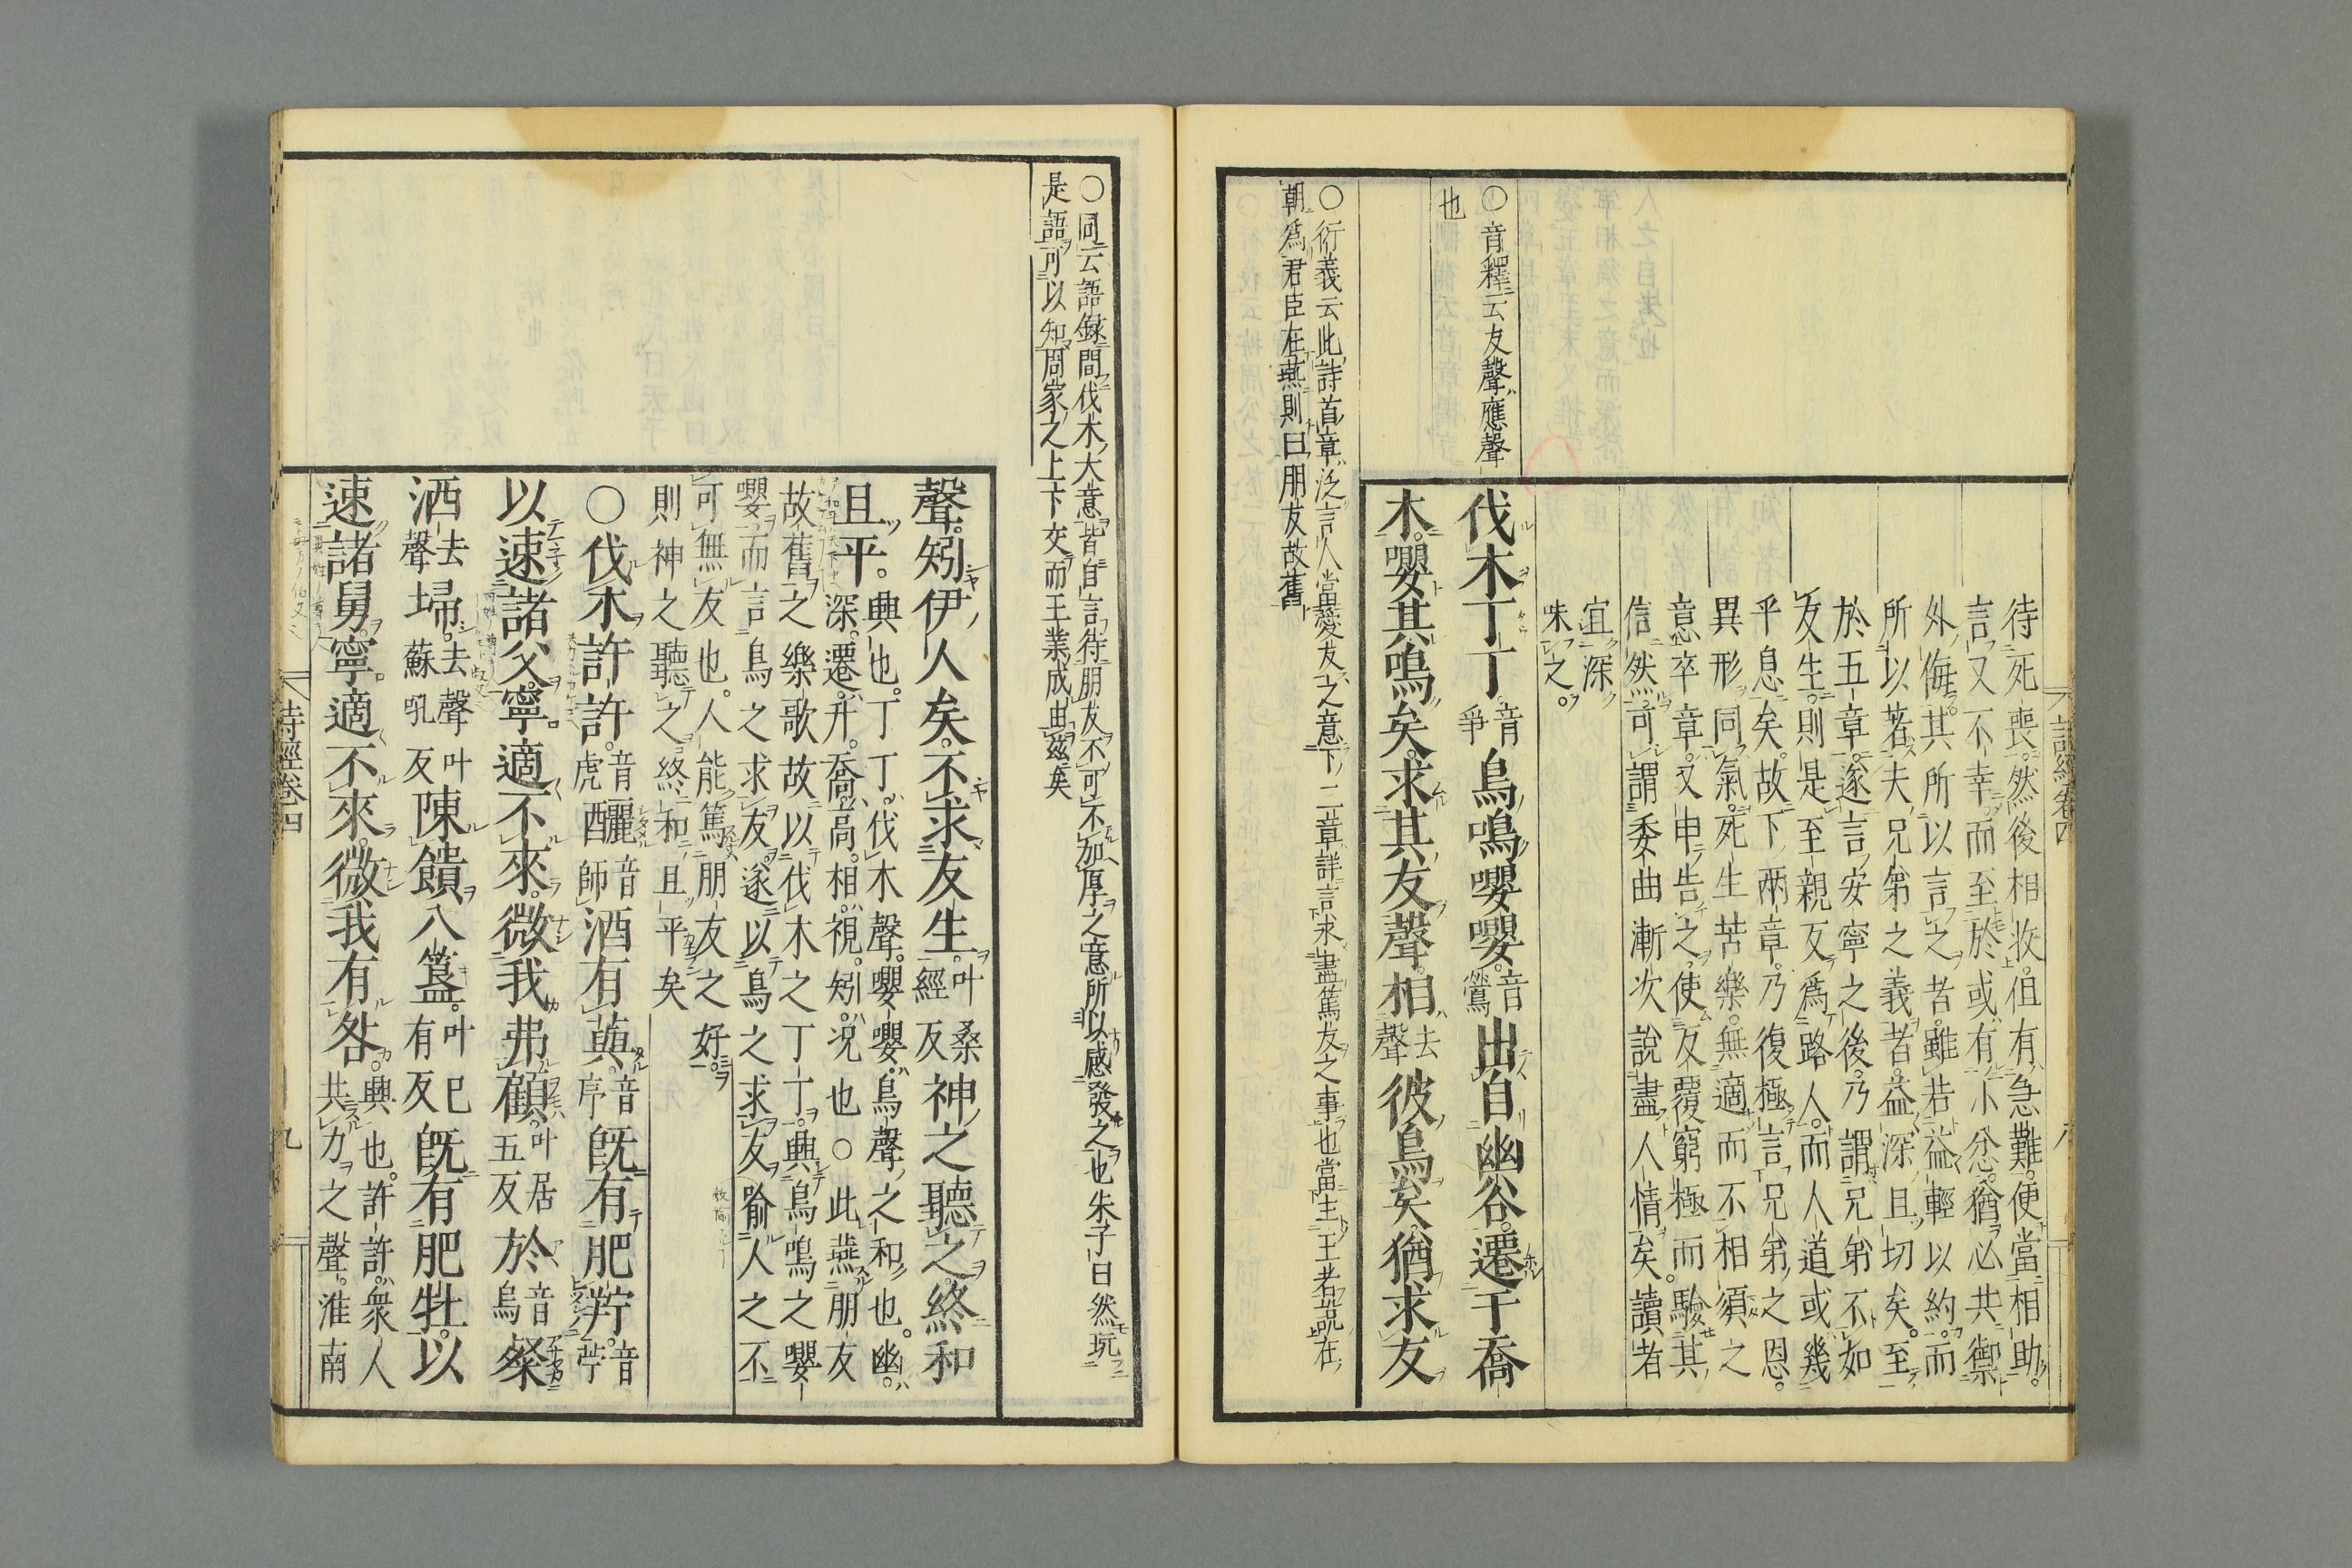 詩經卷四
八
待死喪。然後相收。但有急難。便當相助。
言又不幸。而至於或有小忿。猶必共禦
外侮。其所以言之者。雖若益輕以約。而
所以著夫兄弟之義者。益深且切矣。至
於五章。遂言安寧之後。乃謂兄弟不如
友生。則是至親反爲路人。而人道或幾
乎息矣。故下兩章。乃復極言兄弟之恩。
異形同氣。死生苦樂。無適而不相須之
意。卒章。又申告之。使反覆窮極而驗其
信然。可謂委曲漸次說盡人情矣。讀者
宜深
味之。
○音釋云友聲應聲
也
伐木丁丁音爭鳥鳴嚶嚶。音鶯出自幽谷。遷于喬
木。嚶其鳴矣。求其友聲。相去聲彼鳥矣。猶求友
○衍義云此詩首章泛言人當愛友之意下二章詳言求盡篤友之事也當主王者說在
朝爲君臣在燕則曰朋友故舊
○同云語錄問伐木大意皆自言待朋友不可不加厚之意所以感發之也朱子曰然玩
是語可以知周家之上下交而王業成由茲矣
聲。矧伊人矣。不求友生。叶桑經反神之聽之。終和
且平。興也。丁丁。伐木聲。嚶嚶。鳥聲之和也。幽。
深。遷。升。喬。高。相。視。矧。况也○此燕朋友
故舊之樂歌故以伐木之丁丁。興鳥鳴之嚶
嚶。而言鳥之求友。遂以鳥之求友。喻人之不
可無友也。人能篤朋友之好。
則神之聽之。終和且平矣
○伐木許許。音虎釃音師酒有藇。音序旣有肥羜。音苧
以速諸父。寧適不來。微我弗顧。叶居五反於音烏粲
洒去聲埽。去聲叶蘇吼反陳饋八簋。叶已有反旣有肥牡。以
速諸舅。寧適不來。微我有咎。興也。許許。衆人
共力之聲。淮南
詩經卷四
九